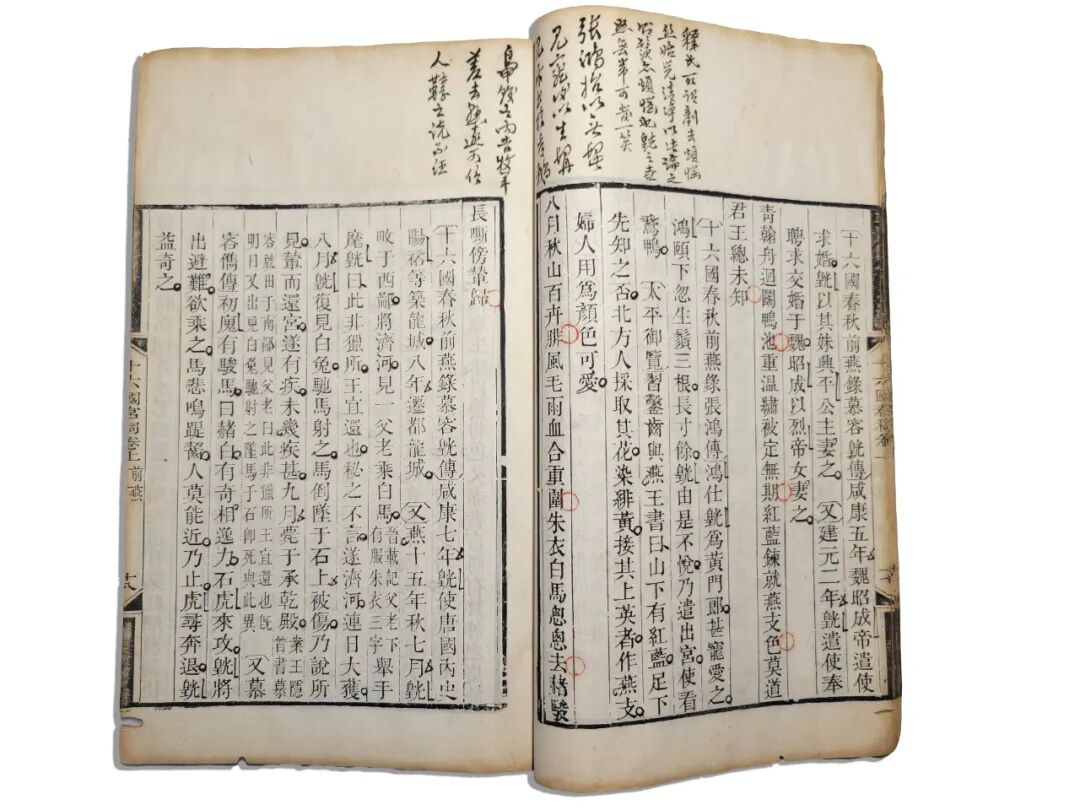 十六國春秋前燕錄慕容皝傳咸康五年魏昭成帝遣使
求婚皝以其妹興平公主妻之 又建元二年皝遣使奉
聘求交婚于魏昭成以烈帝女妻之
青翰舟迴鬬鴨池重温繡被定無期紅藍鍊就燕支色莫道
君王總未知
十六國春秋前燕錄張鴻傳鴻仕皝爲黃門郎甚寵愛之
鴻頤下忽生鬚三根長寸餘皝由是不悅乃遣出宮使看
鵞鴨 太平御覽習鑿齒與燕王書曰山下有紅藍足下
先知之否北方人採取其花染緋黃接其上英者作燕支
婦人用爲顏色可愛
八月秋山百卉腓風毛雨血合重圍朱衣白馬悤悤去赭駿
長嘶傍輦歸
十六國春秋前燕錄慕容皝傳咸康七年皝使唐國內史
陽裕等築龍城八年遷都龍城 又燕十五年秋七月皝
畋于西鄙將濟河見一父老乘白馬晉載記父老下有服朱衣三字舉手
麾皝曰此非獵所王宜還也秘之不言遂濟河連日大獲
八月皝復見白兔馳馬射之馬倒墜于石上被傷乃說所
見輦而還宮遂有疾未幾疾甚九月薨于承乾殿案王隱晉書慕
容皝田于南鄙見父老曰此非獵所王宜還也皝明日又出見白兔馳射之墜馬于石卽死與此異 又慕
容儁傳初廆有駿馬曰赭白有奇相逸力石虎來攻皝將
出避難欲乘之馬悲鳴踶齧人莫能近乃止虎尋奔退皝
益奇之
釋氏所謂剃去煩惱
張鴻
人
十六國宮詞卷上 前燕
十八